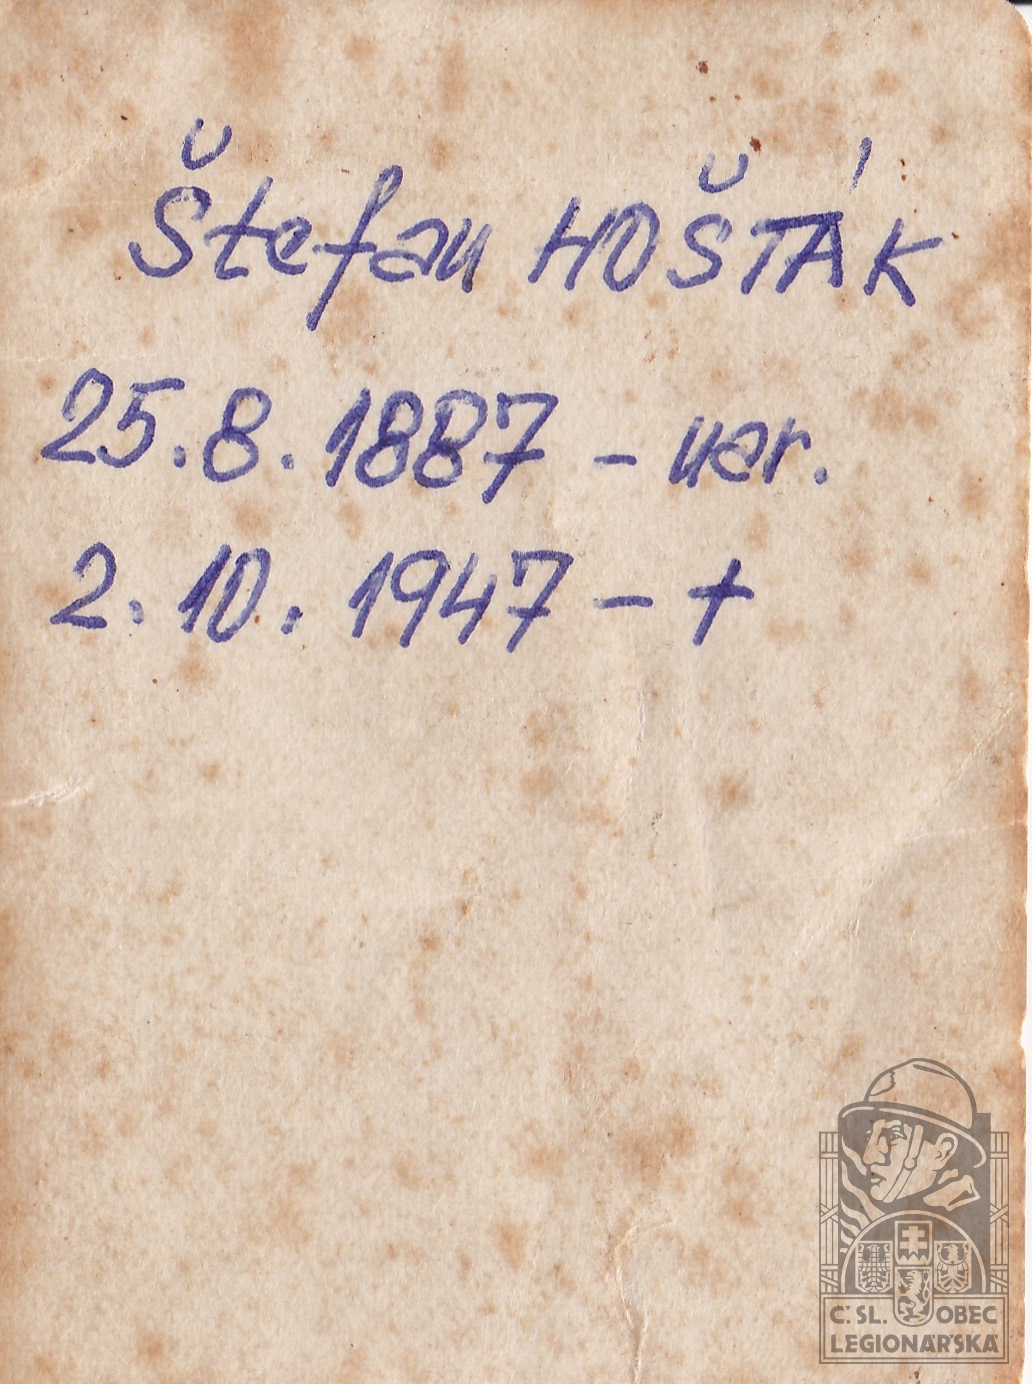 Štefan HOŠTÁK
25.8.1887 - nar.
2.10.1947 - +
Č.SL. OBEC
LEGIONÁŘSKÁ